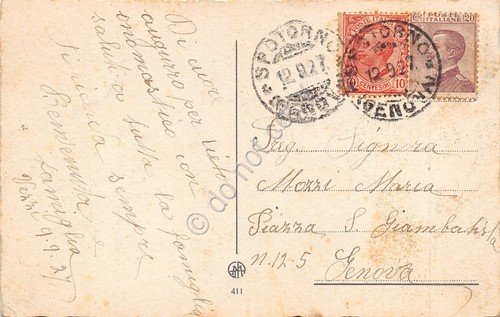 Di cuore
auguro per lieto
onomastico con
saluti a tutta la famiglia
Vi ricorda sempre
Benvenuta e
famiglia
Vezzi 9.9.27
SPOTORNO
12.9.27
(GENOVA)
SPOTORNO
12.9.27
(GENOVA)
POSTE ITALIANE
CENTESIMI 10
POSTE ITALIANE
C. 20
Sig. Signora
Mozzi Maria
Piazza S. Giambatista
N. 12-5
Genova
411